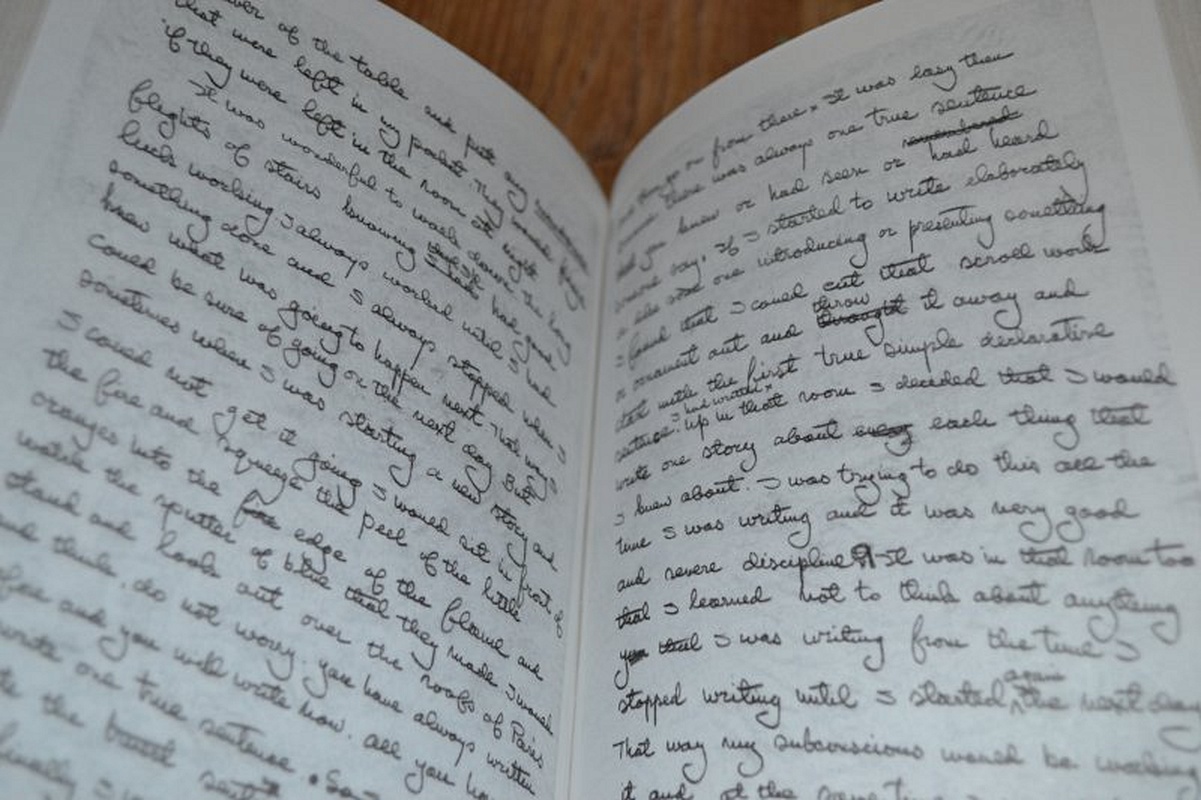 of the table and put any
that were left in my pocket. They would freeze
if they were left in the room at night.
It was wonderful to walk down the long
flights of stairs knowing that I had had good
luck working. I always worked until I had
something done and I always stopped when I
knew what was going to happen next. That way I
could be sure of going on the next day. But
sometimes when I was starting a new story and
I could not get it going I would sit in front of
the fire and squeeze the peel of the little
oranges into the edge of the flame and
watch the sputter of blue that they made. I would
stand and look out over the roofs of Paris
and think, do not worry. you have always written
before and you will write now. all you have
write one true sentence. So
the sent
finally I
then go on from there. It was easy then
because there was always one true sentence
that you knew or had seen or remembered had heard
someone say. If I started to write elaborately
or like some one introducing or presenting something
I found that I could cut that scroll work
or ornament out and throw it away and
start with the first true simple declarative
sentence. I had written. up in that room I decided that I would
write one story about every each thing that
I knew about. I was trying to do this all the
time I was writing and it was very good
and severe discipline ¶ It was in that room too
that I learned not to think about anything
that I was writing from the time I
stopped writing until I started again the next day
That way my subconscious would be working
it and at the same time I